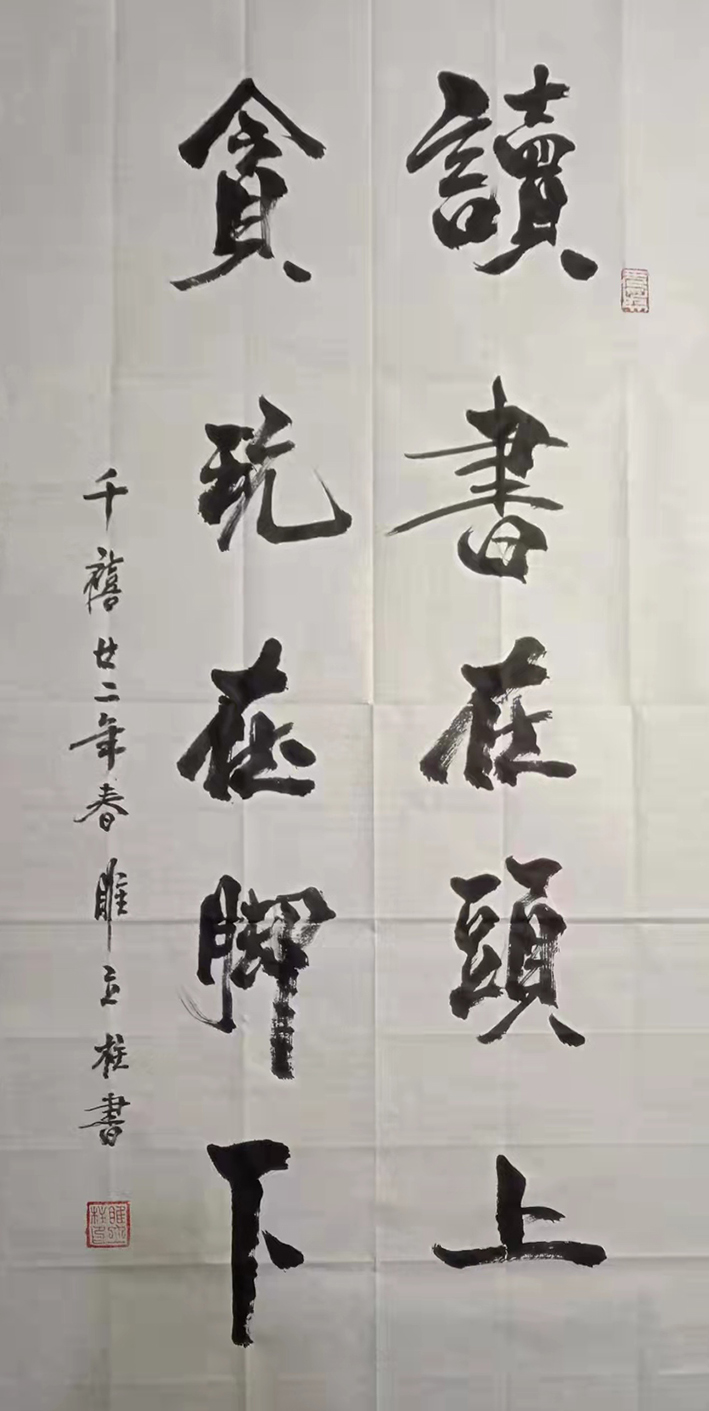 讀書在頭上
貪玩在脚下
千禧廿二年春睢立柱書